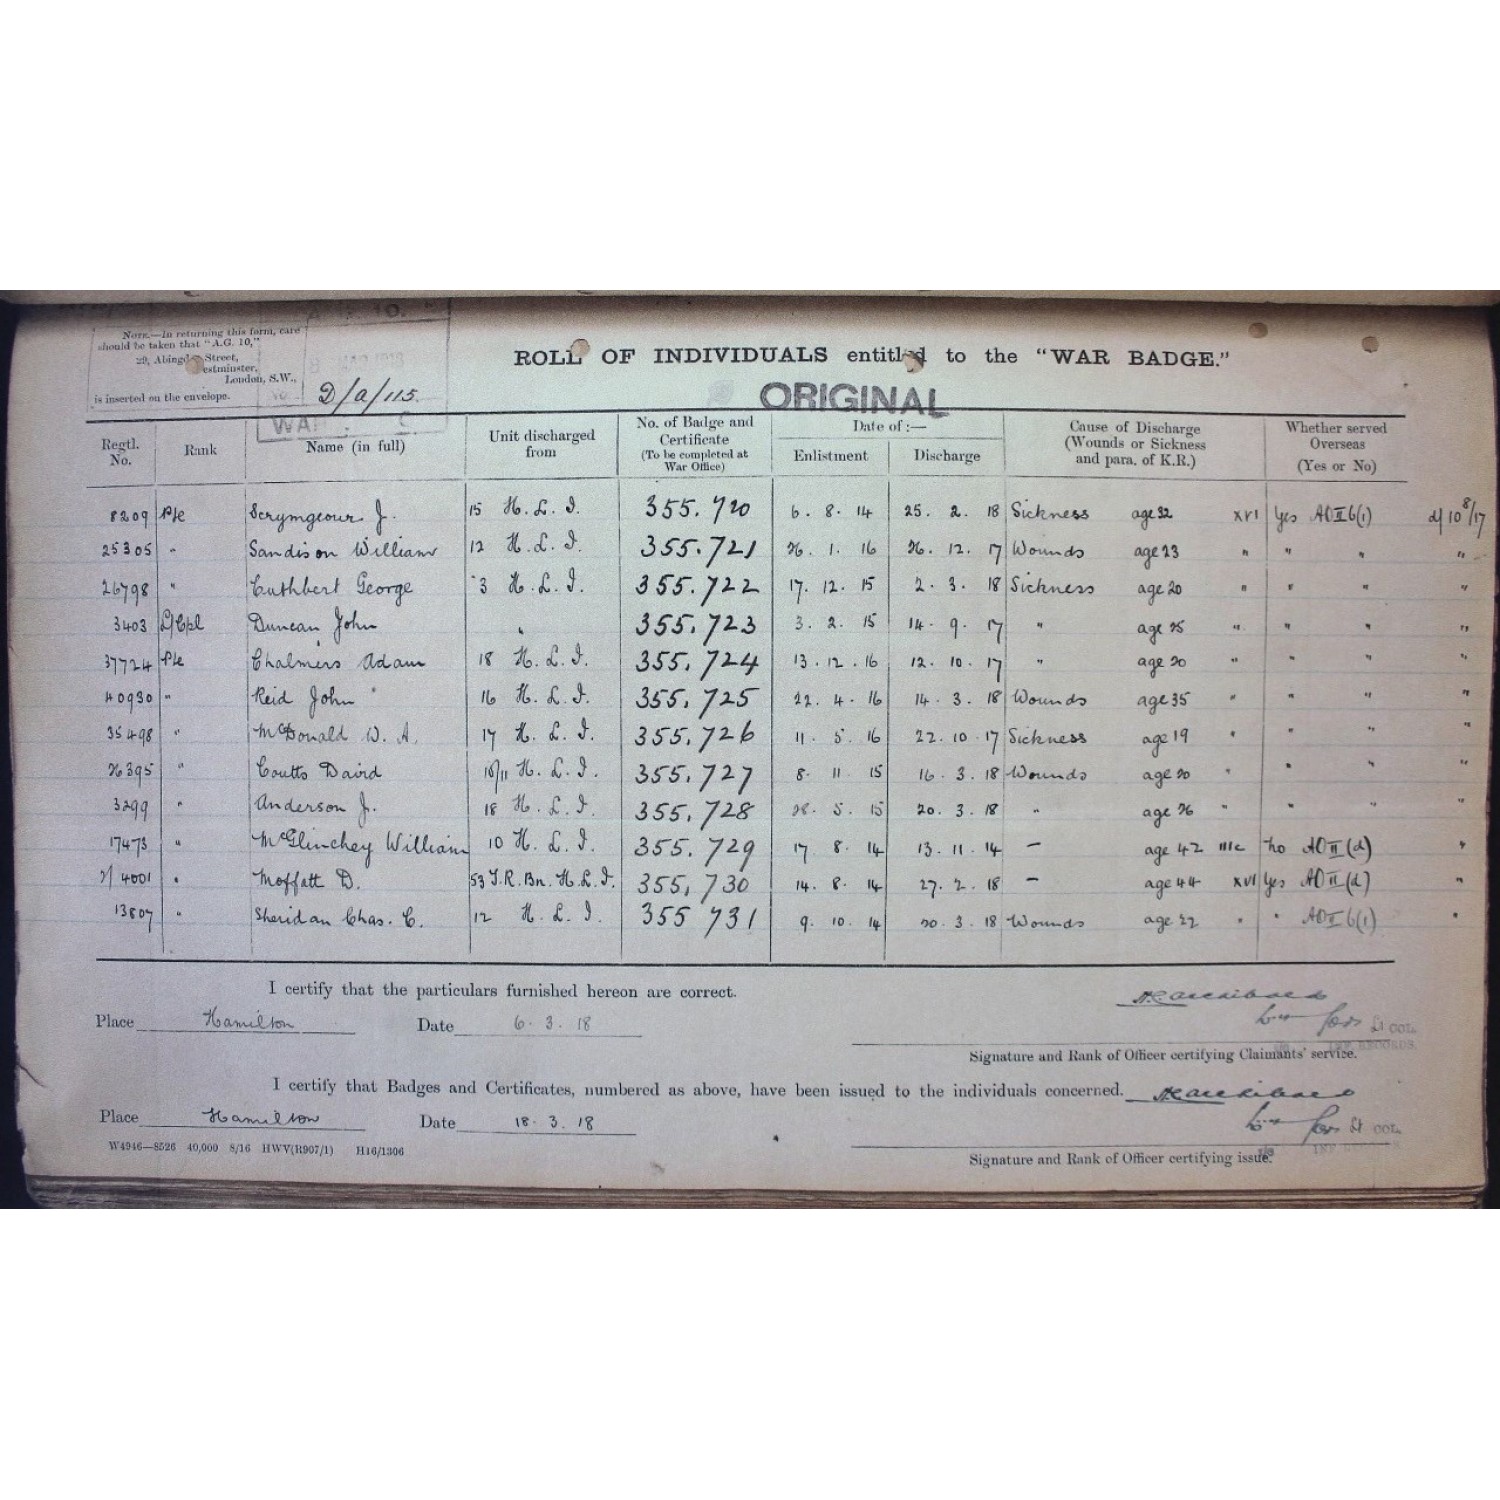 NOTE.—In returning this form, care
should be taken that "A.G. 10,"
29, Abingdon Street,
estminster,
London, S.W.,
is inserted on the envelope.
D/a/115.
ROLL OF INDIVIDUALS entitled to the "WAR BADGE."
ORIGINAL
Regtl. No. Rank Name (in full) Unit discharged from No. of Badge and Certificate (To be completed at War Office) Date of:— Enlistment Discharge Cause of Discharge (Wounds or Sickness and para. of K.R.) Whether served Overseas (Yes or No)
8209 Pte Scrymgeour J. 15 H.L.I. 355.720 6.8.14 25.2.18 Sickness age 32 XVI Yes AO II 6(1) d/10 8/17
25305 " Sandison William 12 H.L.I. 355.721 26.1.16 26.12.17 Wounds age 23 " " " "
26798 " Cuthbert George 3 H.L.I. 355.722 17.12.15 2.3.18 Sickness age 20 " " " "
3403 L/Cpl Duncan John " 355.723 3.2.15 14.9.17 " age 25 " " " "
37724 Pte Chalmers Adam 18 H.L.I. 355.724 13.12.16 12.10.17 " age 20 " " " "
40930 " Reid John 16 H.L.I. 355.725 22.4.16 14.3.18 Wounds age 35 " " " "
35498 " McDonald W. A. 17 H.L.I. 355.726 11.5.16 22.10.17 Sickness age 19 " " " "
26395 " Coutts David 10/11 H.L.I. 355.727 8.11.15 16.3.18 Wounds age 20 " " " "
3299 " Anderson J. 18 H.L.I. 355.728 28.5.15 20.3.18 " age 26 " " " "
17473 " McGlinchey William 10 H.L.I. 355.729 17 8.14 13.11.14 — age 42 IIIc No AO II (d) "
2/4001 " Moffatt D. 53 T.R.Bn. H.L.I. 355,730 14.8.14 27.2.18 — age 44 XVI Yes AO II (d) "
13807 " Sheridan Chas. C. 12 H.L.I. 355 731 9.10.14 20.3.18 Wounds age 22 " " AO II 6(1) "
I certify that the particulars furnished hereon are correct.
Place Hamilton Date 6.3.18
Lt COL.
Signature and Rank of Officer certifying Claimants' service.
I certify that Badges and Certificates, numbered as above, have been issued to the individuals concerned.
Place Hamilton Date 18.3.18
Lt COL.
W4946—8526 40,000 8/16 HWV(R907/1) H16/1306
Signature and Rank of Officer certifying issue.